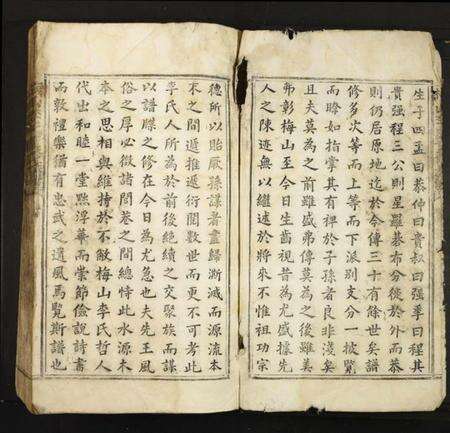 生子四孟曰恭仲曰貴叔曰强季曰程其
貴强程三公則星羅棊布分徙於外而恭
則仍居原地迄於今傳三十有餘世矣譜
修多次等而上等而下派別支分一披覽
而瞭如指掌其有裨於子孫者良非淺矣
且夫莫為之前雖盛弗傳莫為之後雖美
弗彰梅山至今日生齒視昔為尤盛據先
人之陳迹無以繼述於將來不惟祖功宗
德所以貽厥孫謀者盡歸澌滅而源流本
末之間遞推遞衍閱數世而更不可考此
李氏人所為於前後絶續之交聚族而謀
以譜牒之修在今日為尤急也夫先王風
俗之厚必徵諸閭巷之間總恃此水源木
本之思相與維持於不敝梅山李氏哲人
代出和睦一堂黜浮華而崇節儉說詩書
而敦禮樂猶有忠武之遺風焉覽斯譜也